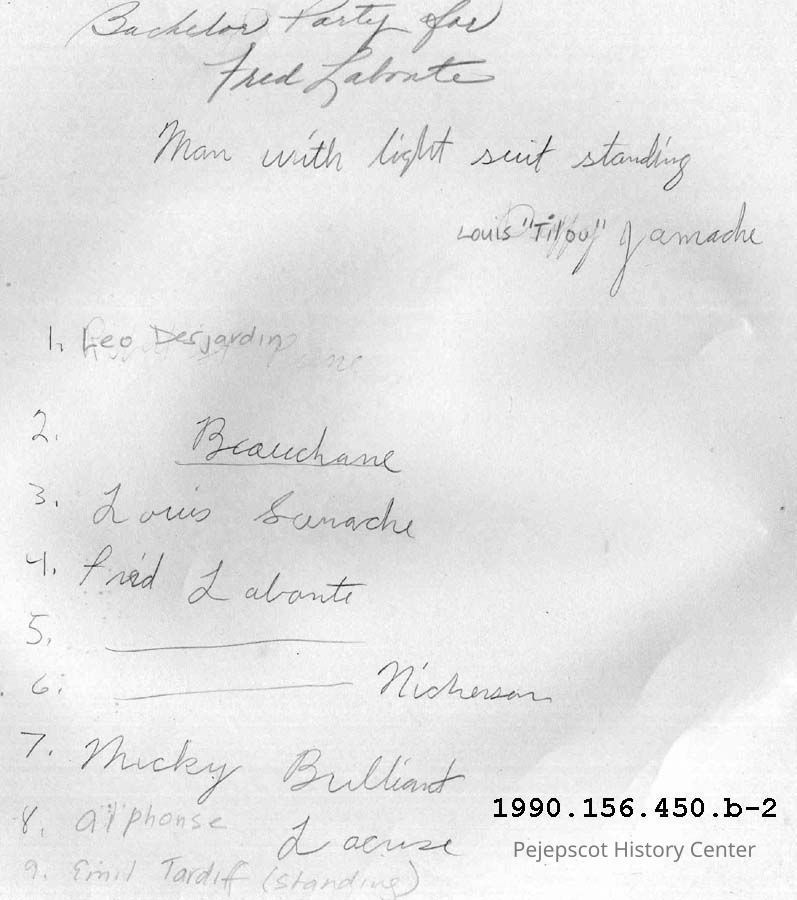 Bachelor Party for
Fred Labonte
Man with light suit standing
Louis "Titou" Gamache
1. Leo Desjardin
2. Beauchane
3. Louis Gamache
4. Fred Labonte
5.
6. Nickerson
7. Micky Brilliant
8. Alphonse Lacuse
9. Emil Tardif (standing)
1990.156.450.b-2
Pejepscot History Center